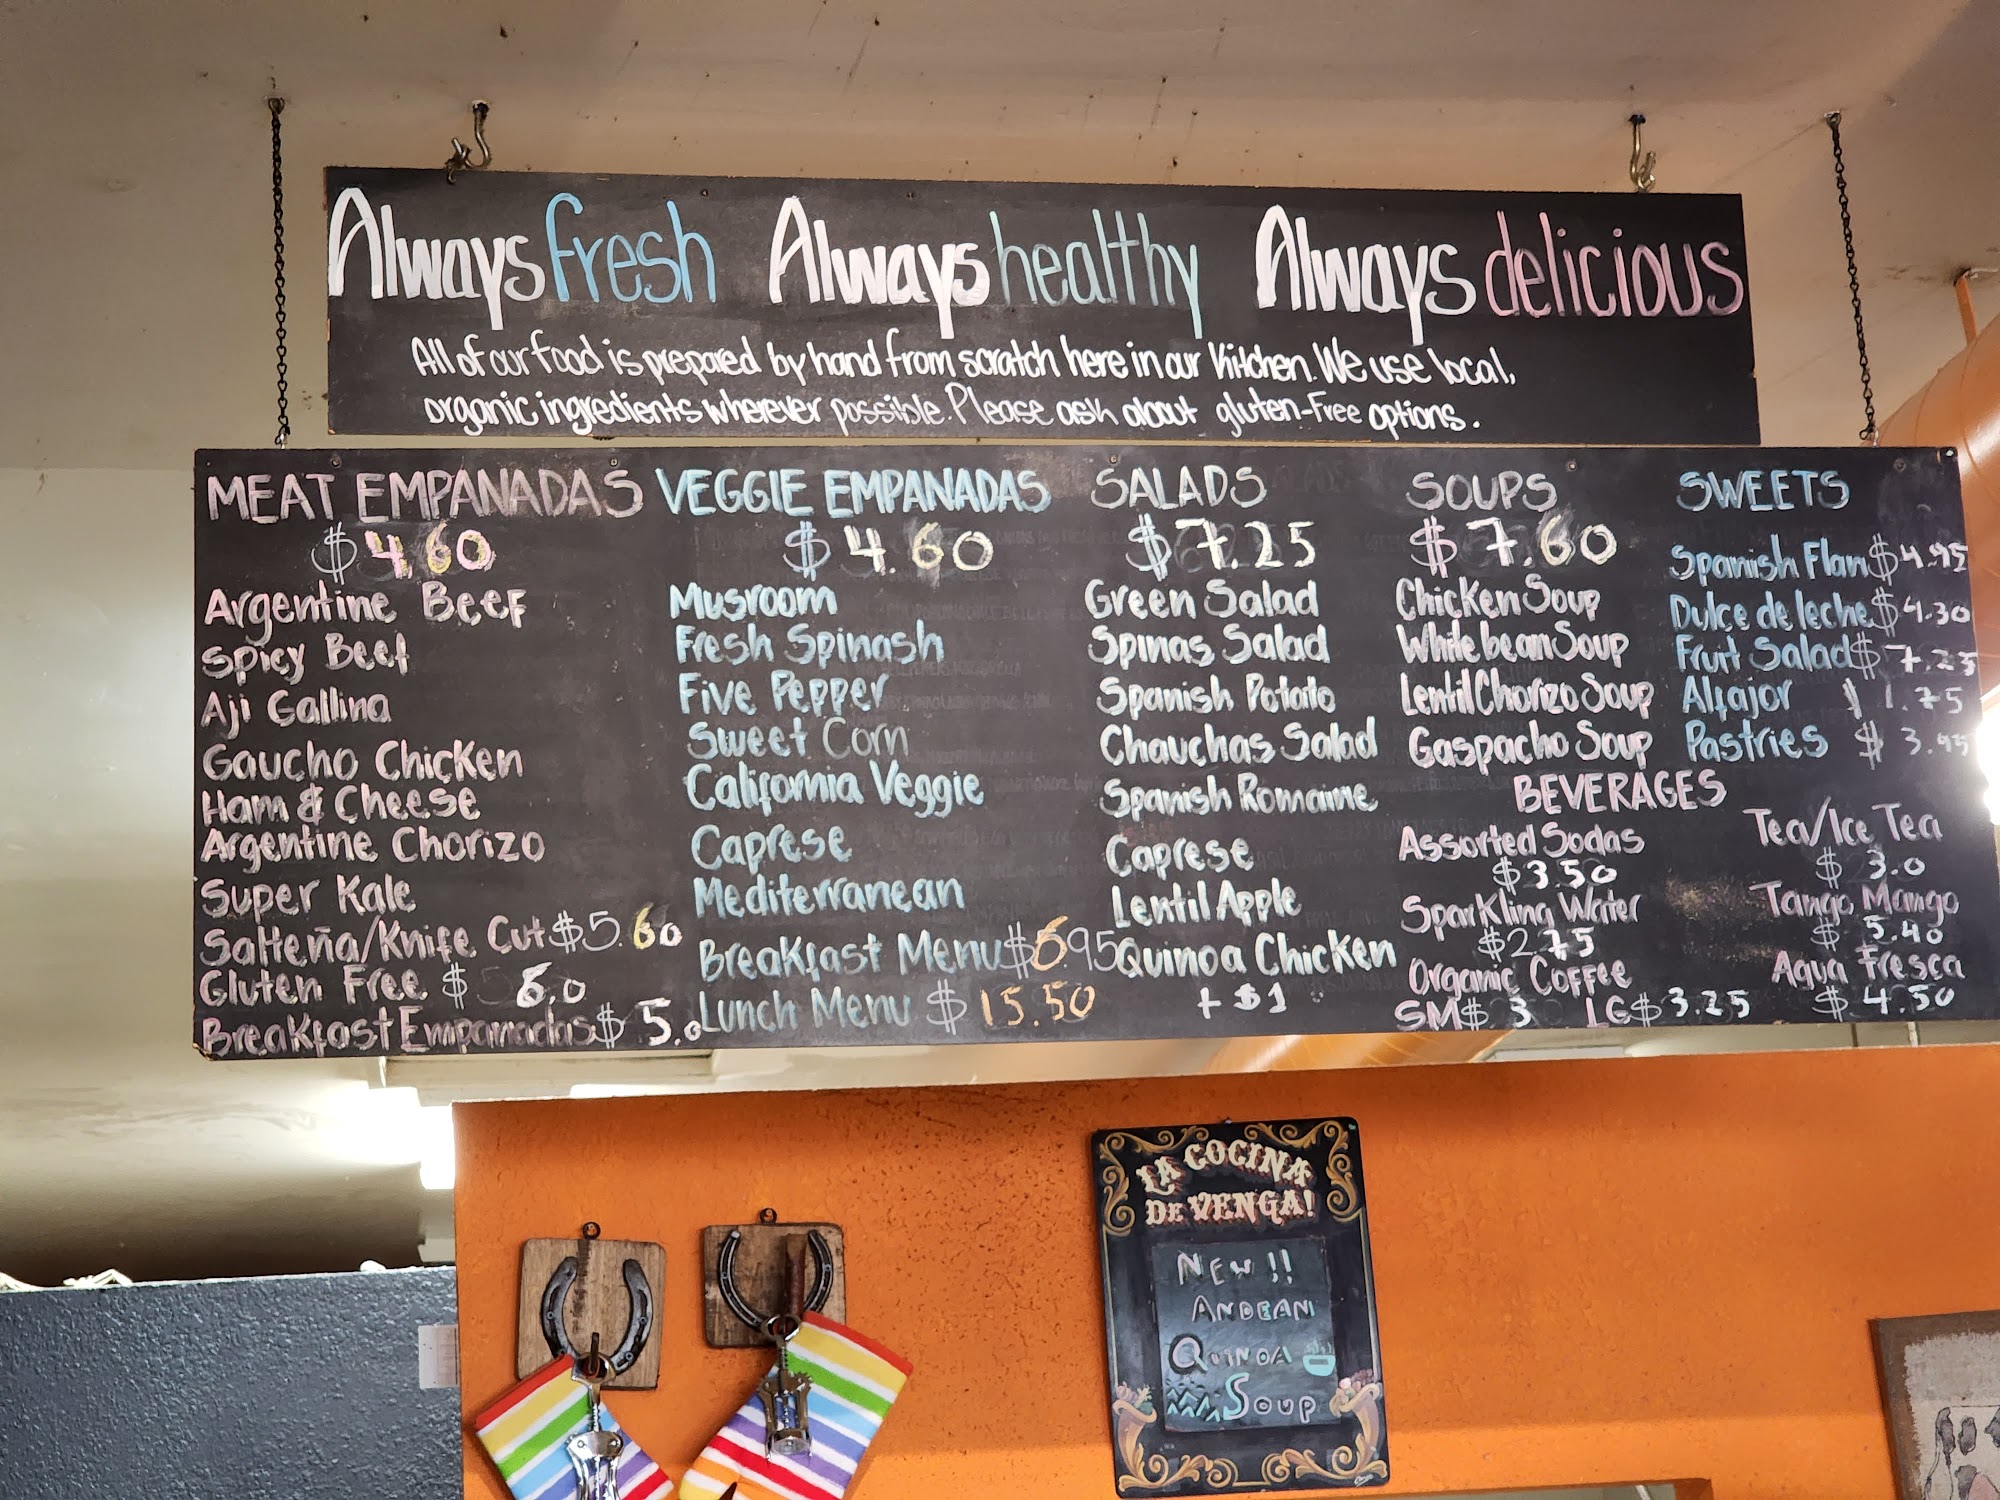 Always fresh Always healthy Always delicious
All of our food is prepared by hand from scratch here in our Kitchen. We use local,
organic ingredients wherever possible. Please ask about gluten-Free options.
MEAT EMPANADAS
$4.60
Argentine Beef
Spicy Beef
Aji Gallina
Gaucho Chicken
Ham & Cheese
Argentine Chorizo
Super Kale
Salteña/Knife Cut $5.60
Gluten Free $6.0
Breakfast Empanadas $5.0
VEGGIE EMPANADAS
$4.60
Musroom
Fresh Spinash
Five Pepper
Sweet Corn
California Veggie
Caprese
Mediterranean
Breakfast Menu $6.95
Lunch Menu $15.50
SALADS
$7.25
Green Salad
Spinas Salad
Spanish Potato
Chauchas Salad
Spanish Romaine
Caprese
Lentil Apple
Quinoa Chicken
+ $1
SOUPS
$7.60
Chicken Soup
White bean Soup
Lentil Chorizo Soup
Gaspacho Soup
SWEETS
Spanish Flan $4.95
Dulce de leche $4.30
Fruit Salad $7.25
Alfajor $1.75
Pastries $3.45
BEVERAGES
Assorted Sodas
$3.50
Sparkling Water
$2.75
Organic Coffee
SM $3 LG $3.25
Tea/Ice Tea
$3.0
Tango Mango
$5.40
Agua Fresca
$4.50
LA COCINA
DE VENGA!
NEW!!
ANDEAN
QUINOA
SOUP